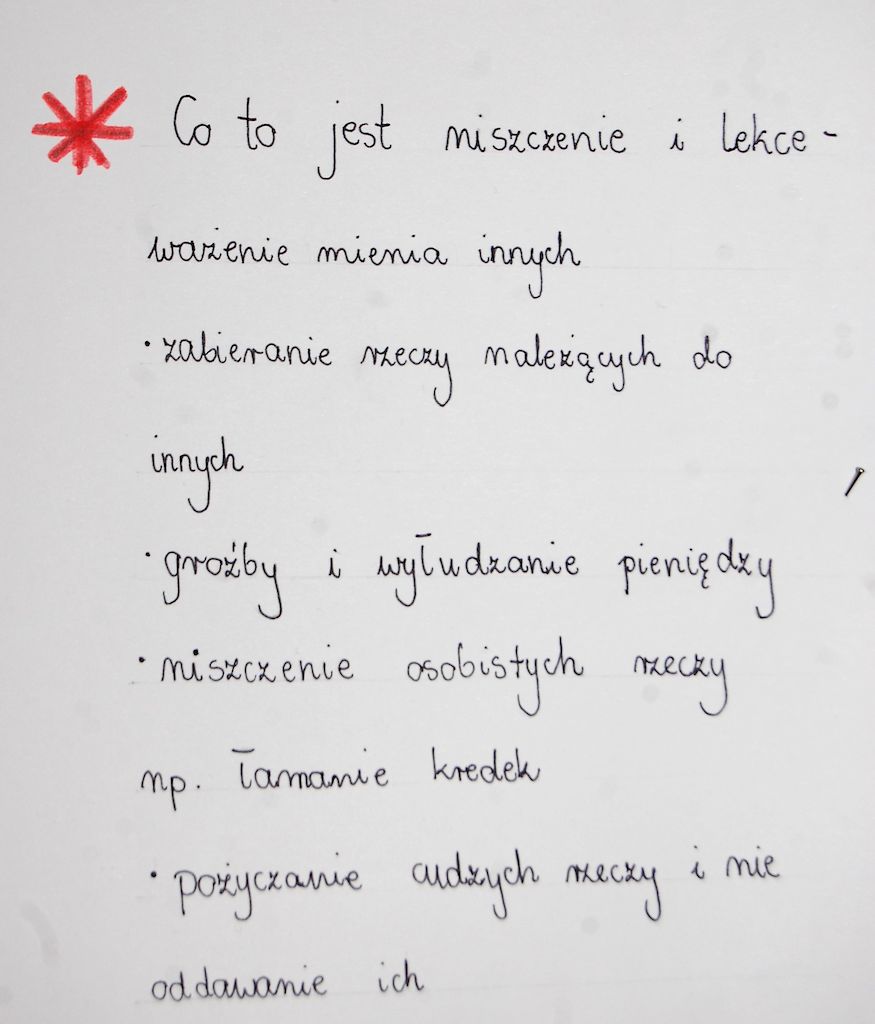 Co to jest niszczenie i lekce-
ważenie mienia innych
· zabieranie rzeczy należących do
innych
· groźby i wyłudzanie pieniędzy
· niszczenie osobistych rzeczy
np. łamanie kredek
· pożyczanie cudzych rzeczy i nie
oddawanie ich